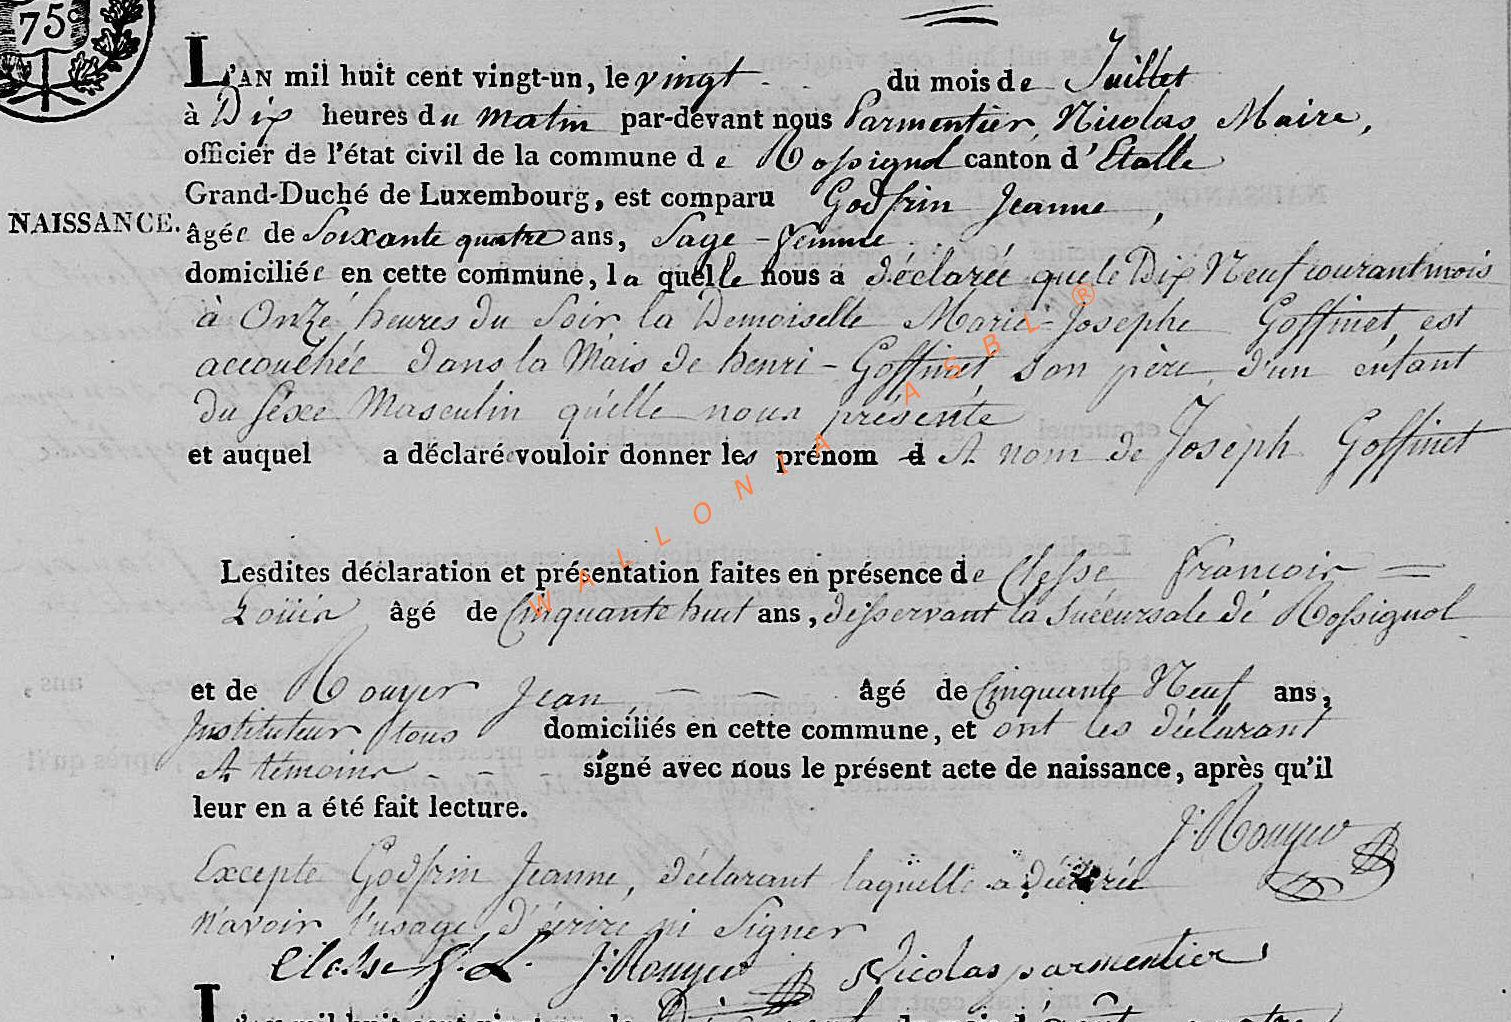 75c
L'AN mil huit cent vingt-un, le vingt du mois de Juillet
à Dix heures du matin par-devant nous Parmentier, Nicolas Maire,
officier de l'état civil de la commune de Rossignol canton d'Etalle
Grand-Duché de Luxembourg, est comparu Godfrin Jeanne,
NAISSANCE.
âgée de Soixante quatre ans, Sage-femme
domiciliée en cette commune, la quelle nous a déclareé que le Dix Neuf courant mois
à Onzé heures du Soir, la Demoiselle Marie-Josephe Goffinet, est
accouchée dans la Mais de henri-Goffinet son père, d'un enfant
du séxe Masculin qu'elle nous présenté
et auquel a déclarée vouloir donner les prénom d et nom de Joseph Goffinet
Lesdites déclaration et présentation faites en présence de Clesse francois
Loüis âgé de Cinquante huit ans, desservant la succursale dé Rossignol
et de Rouyer Jean, âgé de Cinquante Neuf ans,
Instituteur tous domiciliés en cette commune, et ont les déclarant
et témoins signé avec nous le présent acte de naissance, après qu'il
leur en a été fait lecture.
J. Rouyer
Excepte Godfrin Jeanne, déclarant laquelle a déclaréé
n'avoir l'usage d'écrire ni Signer
Clesse f. L. J. Rouyer Nicolas parmentier
WALLONIA ASBL ®